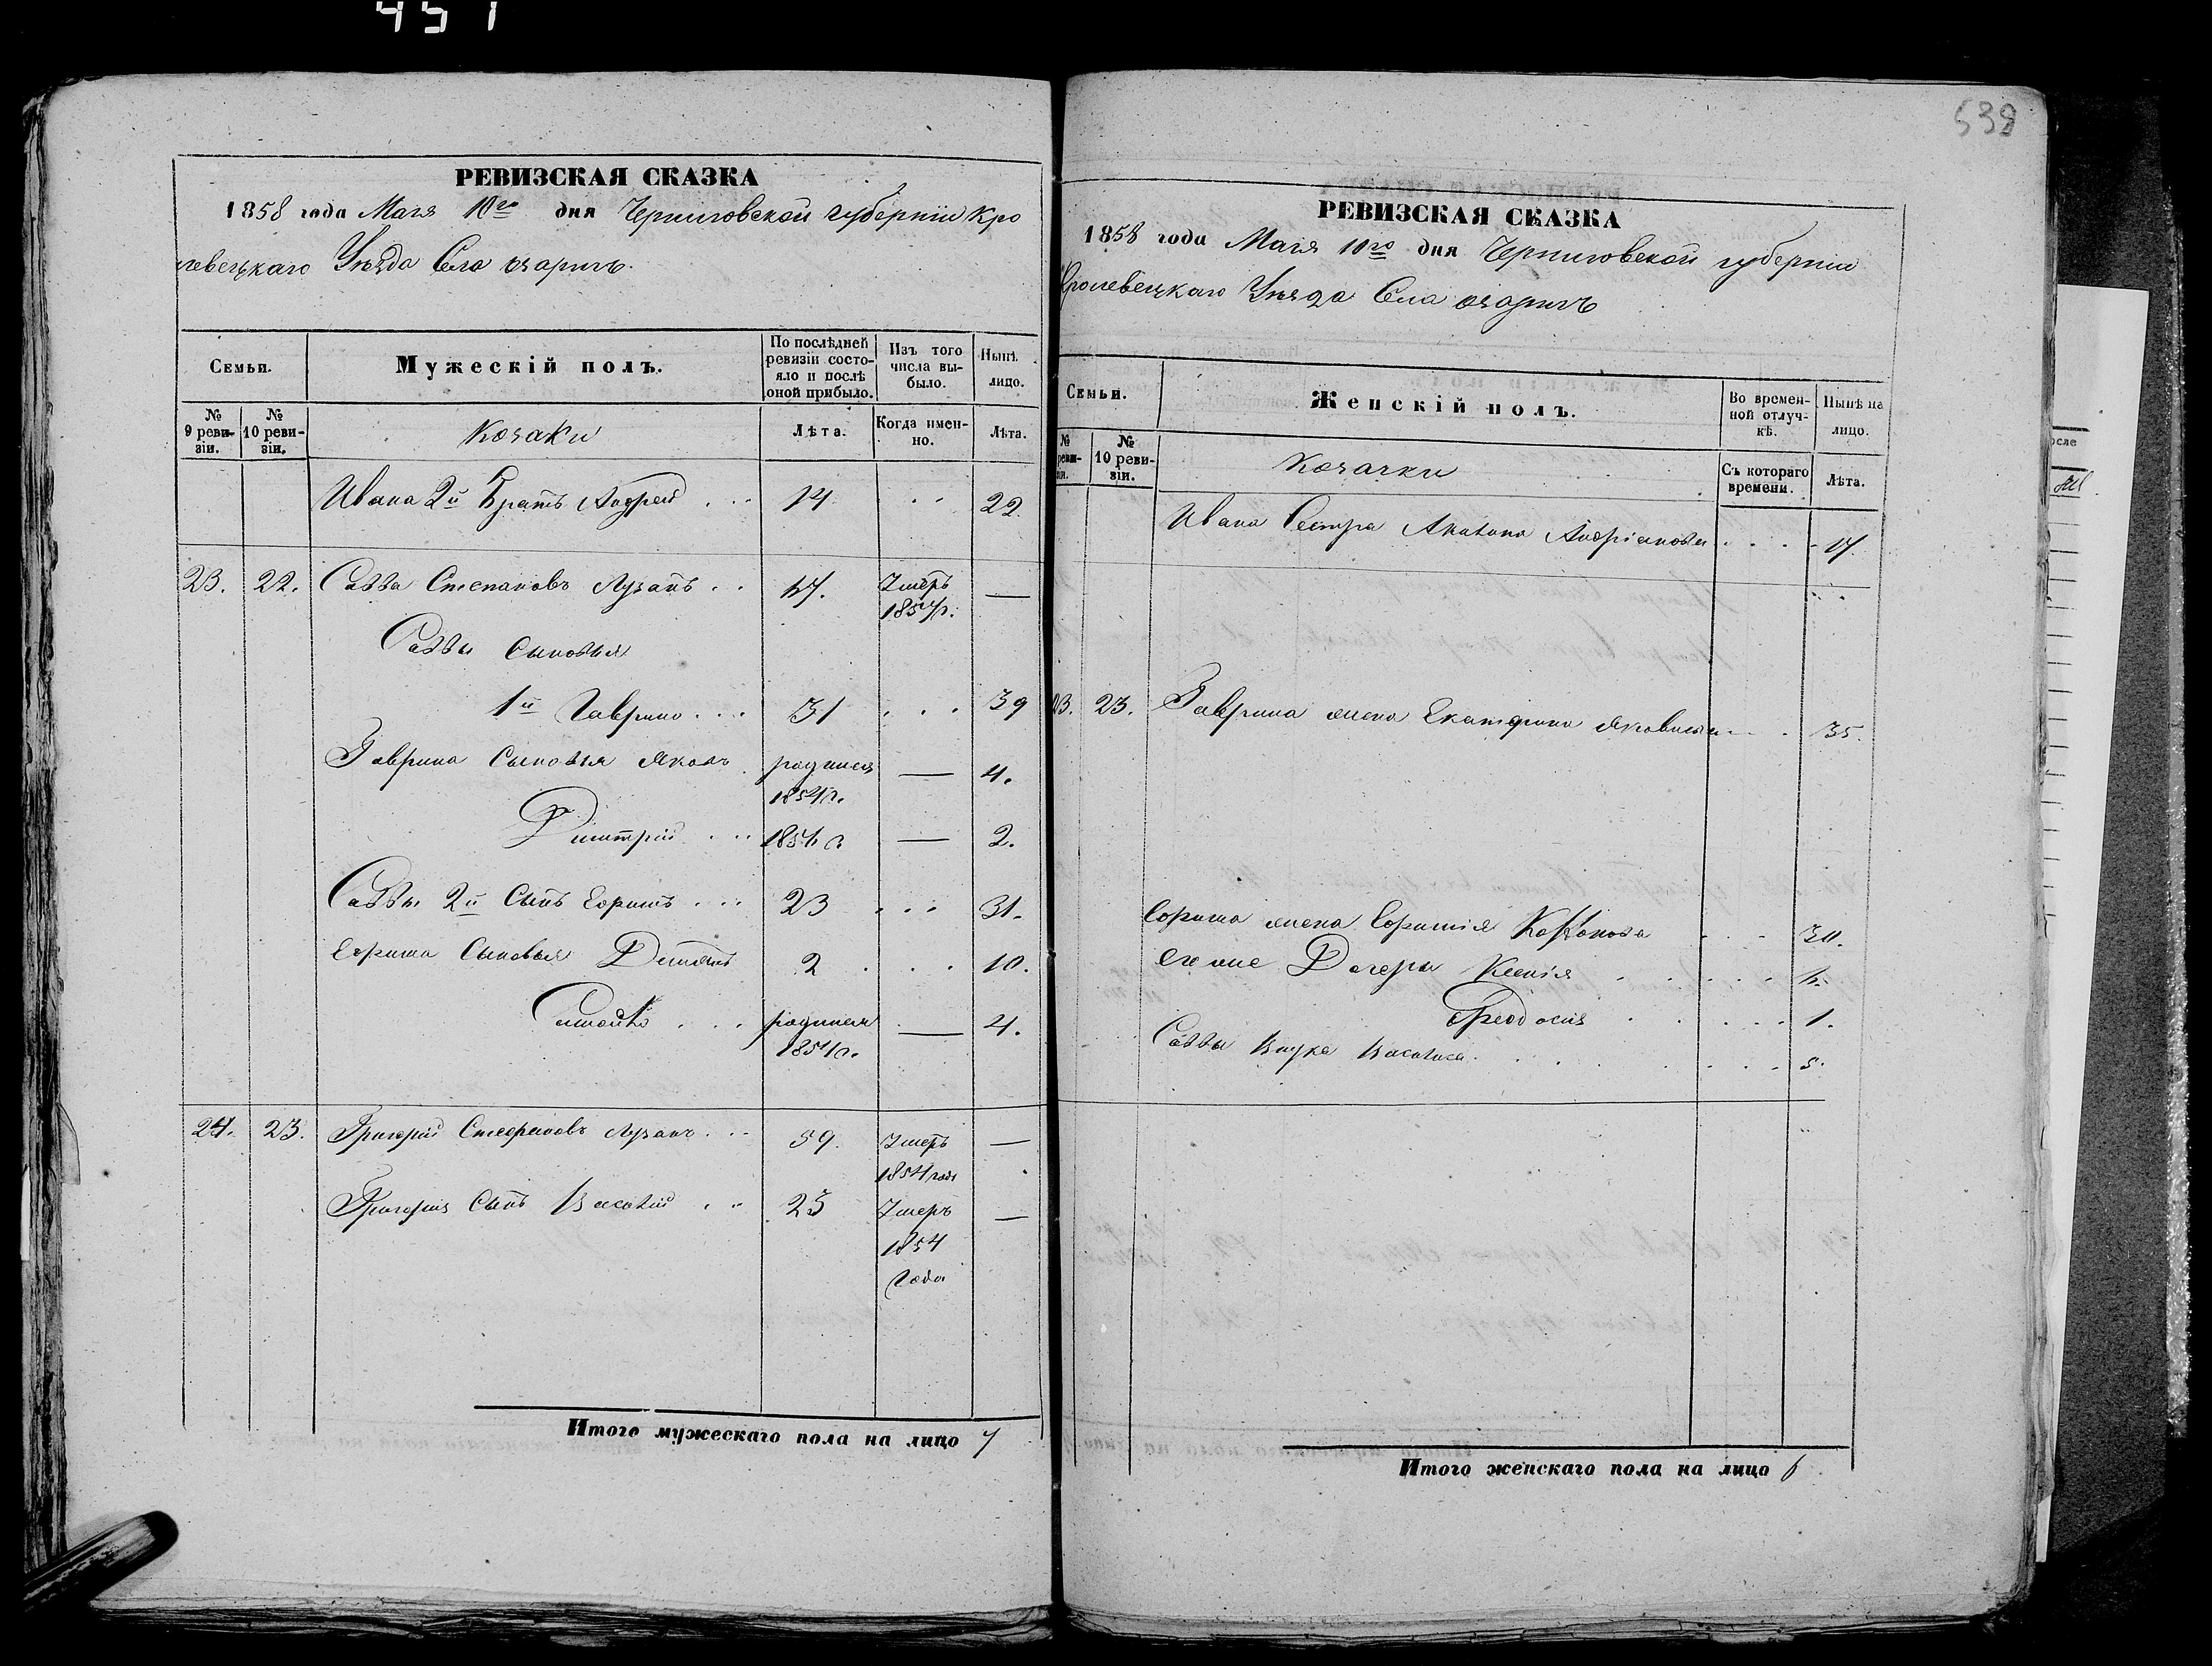 451
РЕВИЗСКАЯ СКАЗКА
1858 года Мая 10го дня Черниговской губернии Кро
левецкаго Уѣзда Села озаричъ.
Семьи.
Мужескій полъ.
По послѣдней ревизіи состояло и послѣ оной прибыло.
Изъ того числа выбыло.
Нынѣ лицо.
№ 9 ревизіи.
№ 10 ревизіи.
Козаки
Лѣта.
Когда именно.
Лѣта.
Ивана 2й Братъ Андрей . . . 14 . . 22.
23. 22. Савва Степановъ Лузанъ . . 47. Умеръ —
1857г.
Саввы сыновья
1й Гаврило . . . 31 . . . 39
Гаврила Сыновья Яковъ родился — 4.
1854г.
Димитрий . . . 1856г — 2.
Саввы 2й Сынъ Ефимъ . . . 23 . . . 31.
Ефима Сыновья 2 . . . 10.
. . . родился — 4.
1854г.
24. 23. Григорій Стефановъ Лузанъ . . . 59. Умеръ —
1854 года
Григорія Сынъ Василій . . 25 Умеръ —
1854
года
Итого мужескаго пола на лицо 7
538
РЕВИЗСКАЯ СКАЗКА
1858 года Мая 10го дня Черниговской губернии
Кролевецкаго Уѣзда Села озаричъ
Семьи.
Женскій полъ.
Во временной отлучкѣ.
Нынѣ на лицо.
№ ревизіи.
№ 10 ревизіи.
Козачки
Съ котораго времени.
Лѣта.
Ивана Сестра Андріанова . . . . 17.
23. 23. Гаврила жена Екатерина Яковлева . . . 35.
жена . . . 30.
его же Дочери Ксенія . . . . . . 6.
Феодосія . . . . . . 1.
Саввы Внука Василиса . . . . . . . 5.
Итого женскаго пола на лицо 6